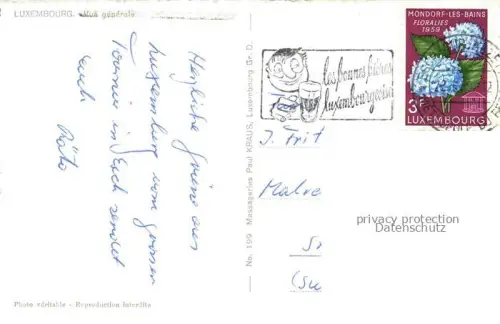 LUXEMBOURG. Vue générale
Herzliche Grüsse aus
Luxemburg vom grossen
Tournier in Esch sendet
Euch
Käthi
Photo véritable - Reproduction interdite
No. 199 Messageries Paul KRAUS, Luxembourg Gr. D.
les bonnes bières
luxembourgeoises
MONDORF-LES-BAINS
FLORALIES
1959
3F
LUXEMBOURG
J. Frit
Malve
privacy protection
Datenschutz